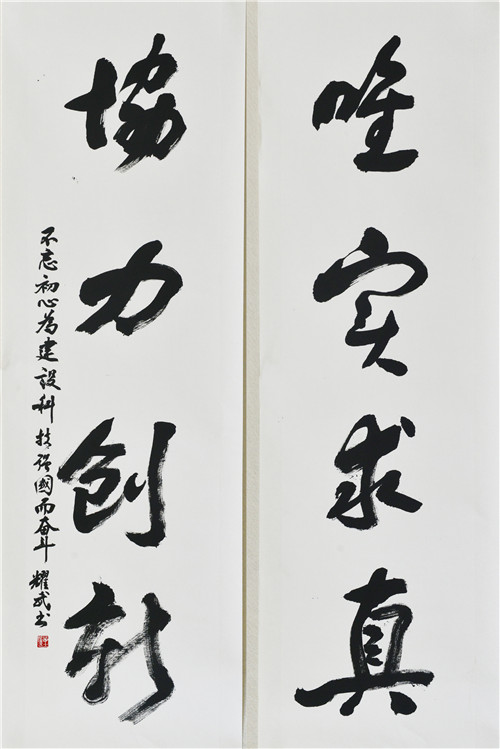 唯实求真
協力创新
不忘初心为建设科技强國而奋斗 耀武书